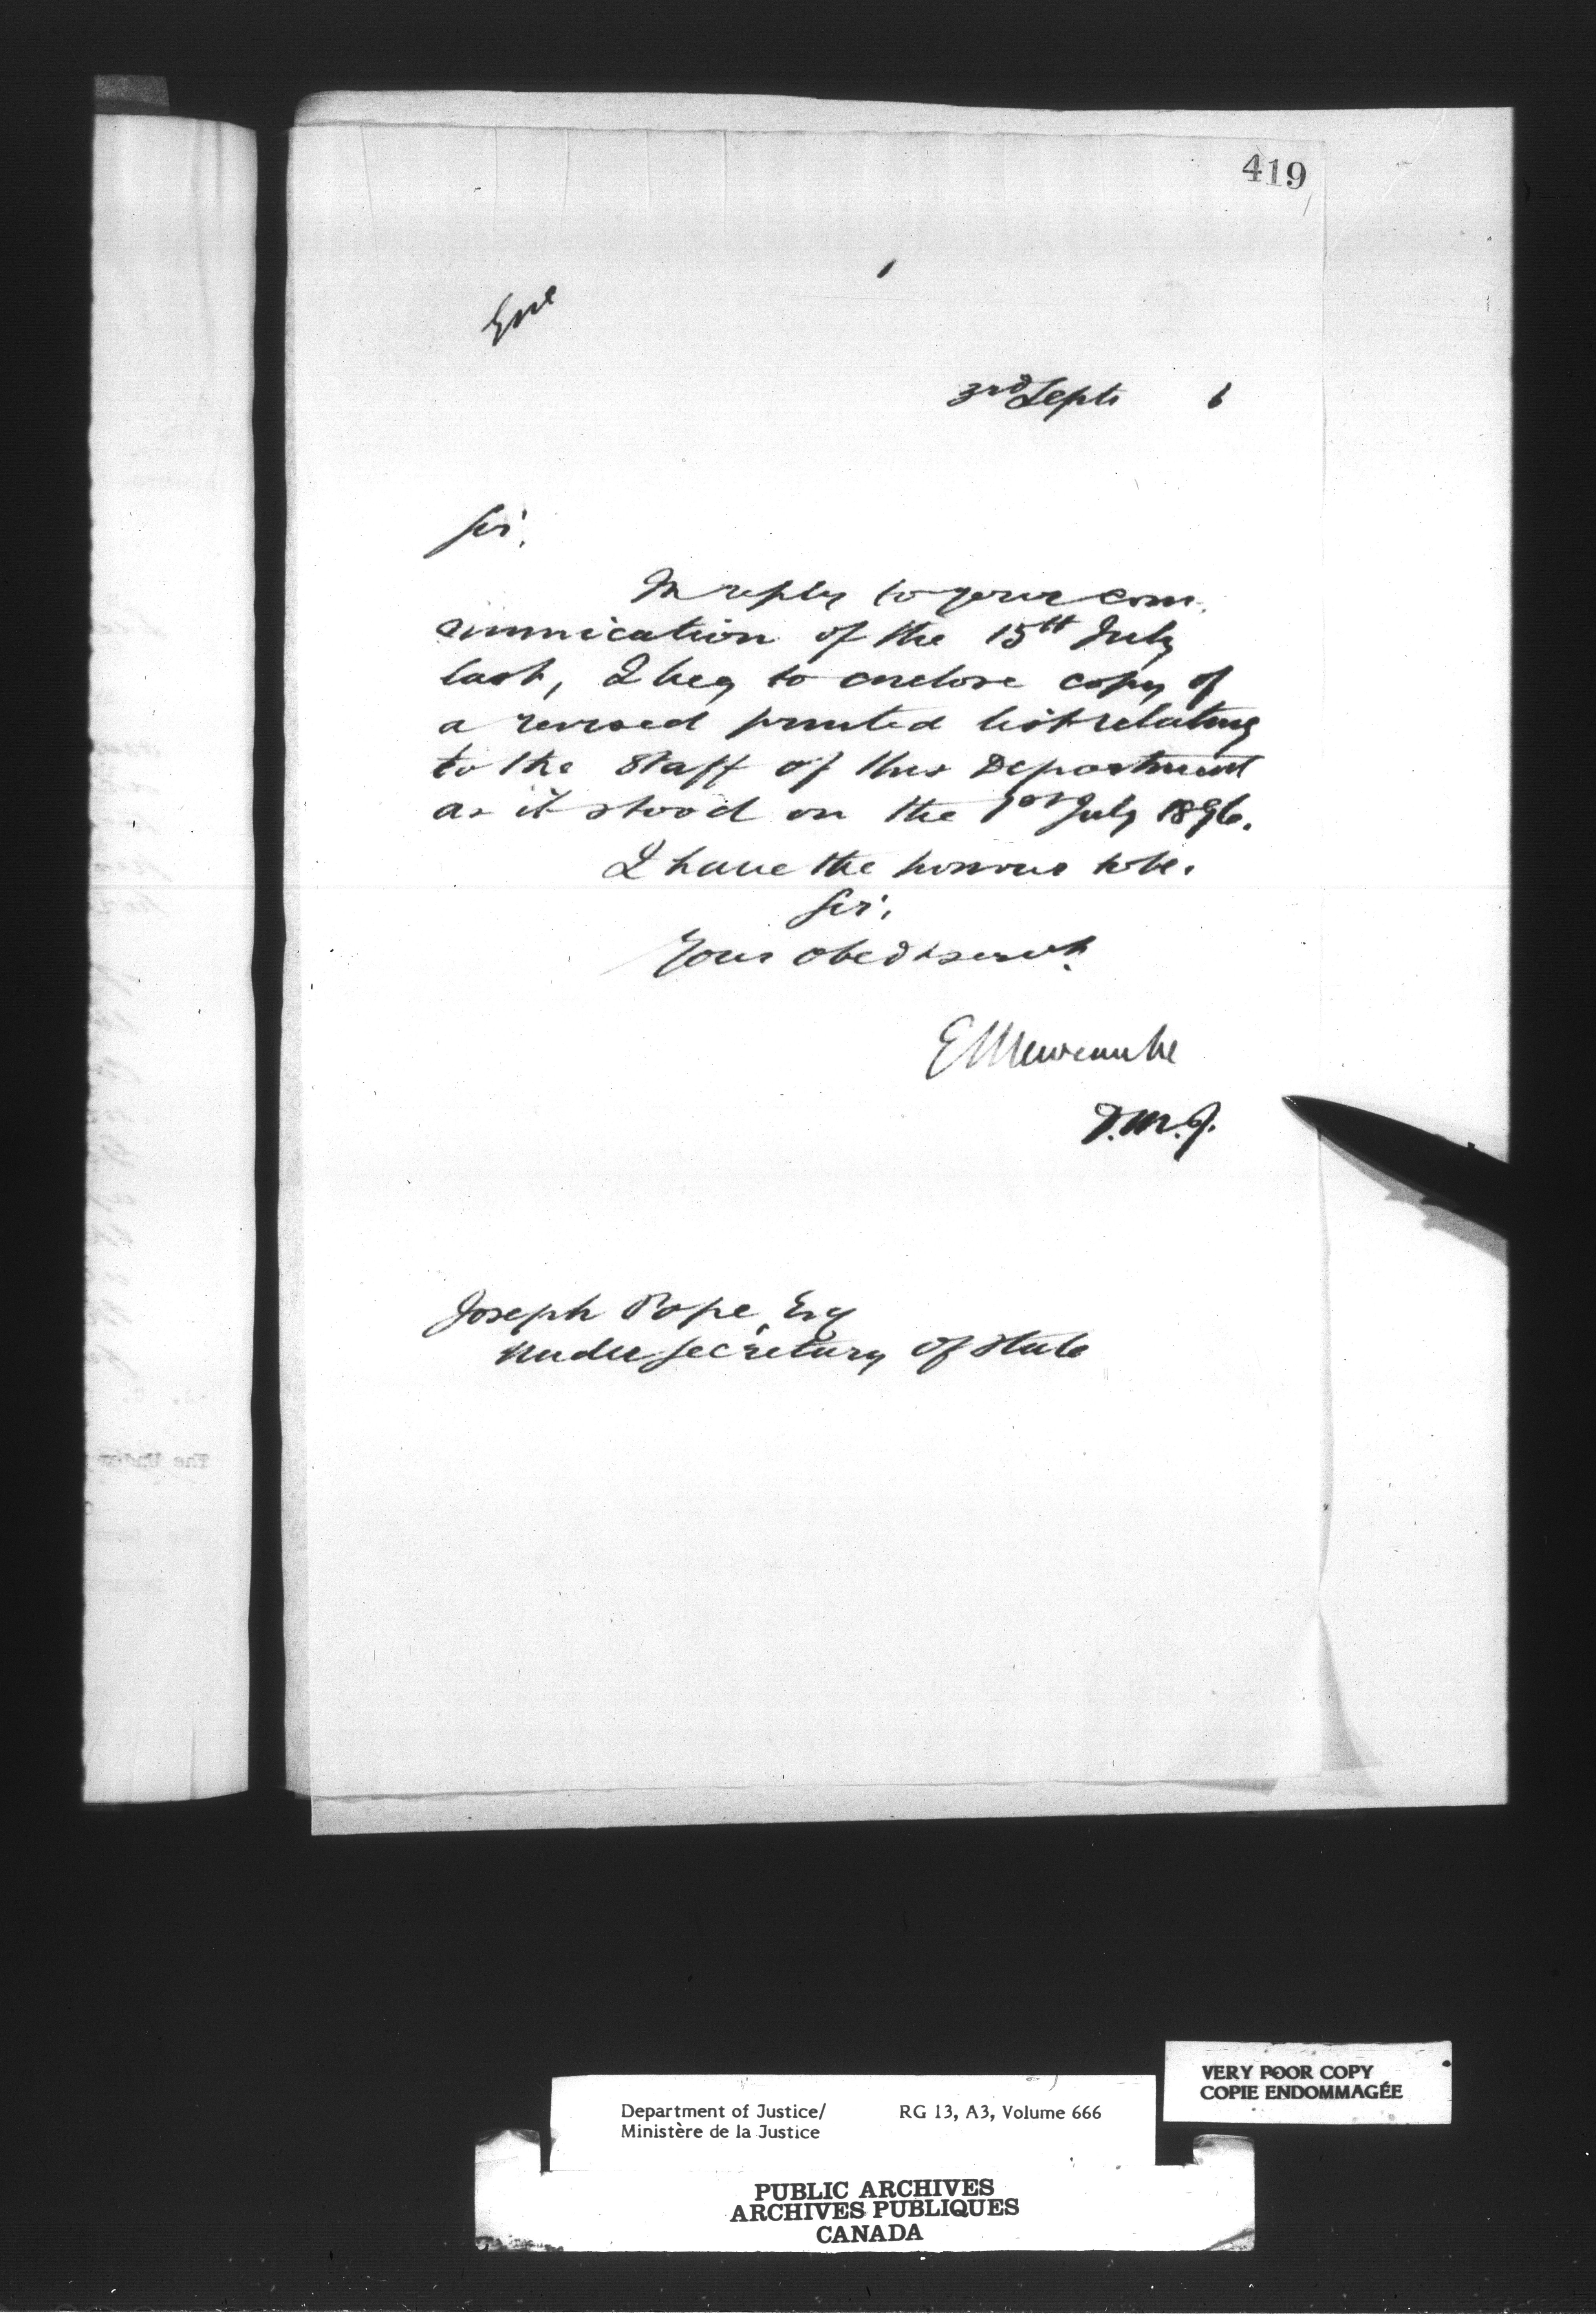 419
3rd Sept 6
Sir,
In reply to your com-
munication of the 15th July
last, I beg to enclose copy of
a revised printed list relating
to the Staff of this Department
as it stood on the 1st July 1896.
I have the honour to be,
Sir,
Your obedt servt.
E L Newcombe
D.M.J.
Joseph Pope, Esq
Under Secretary of State
The Under
VERY POOR COPY
COPIE ENDOMMAGÉE
Department of Justice/ RG 13, A3, Volume 666
Ministère de la Justice
PUBLIC ARCHIVES
ARCHIVES PUBLIQUES
CANADA